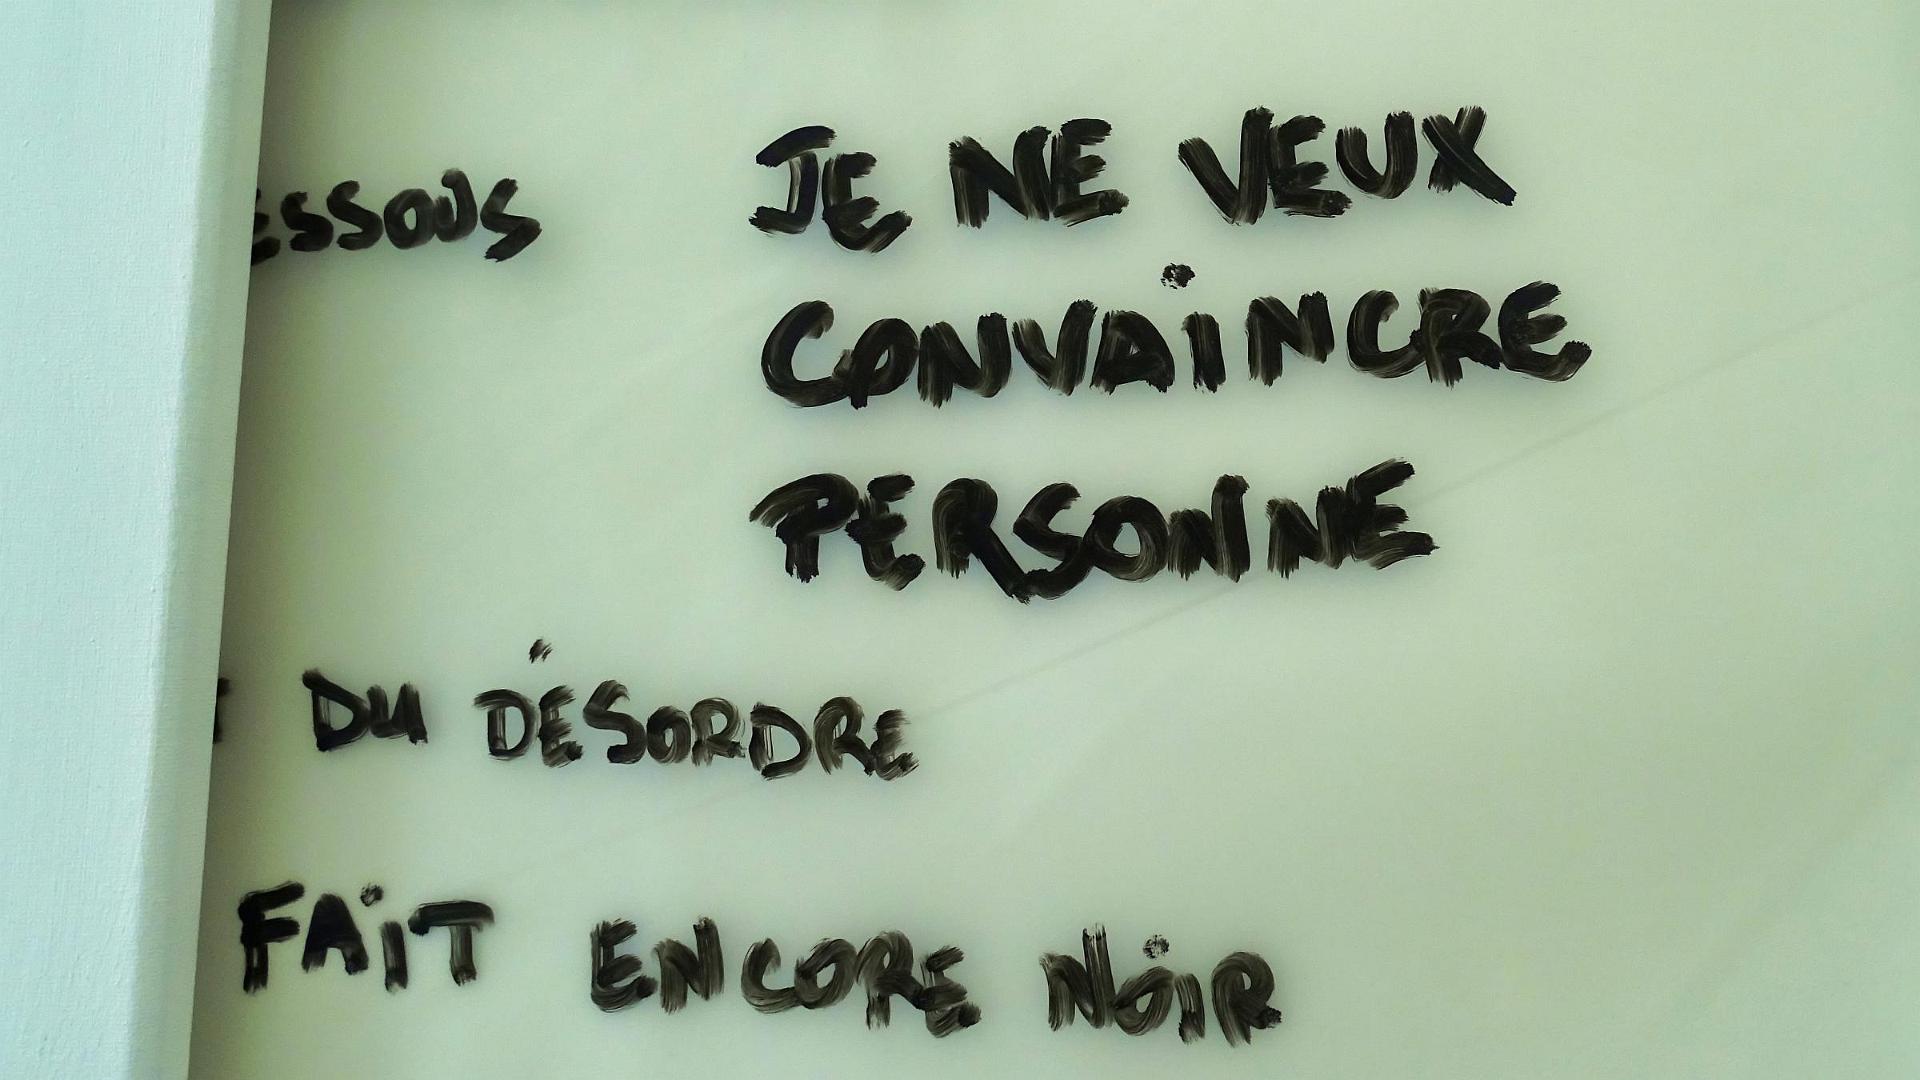 ESSOUS
JE NE VEUX
CONVAiNCRE
PERSONNE
DU DÉSORDRE
FAiT ENCORE NOiR